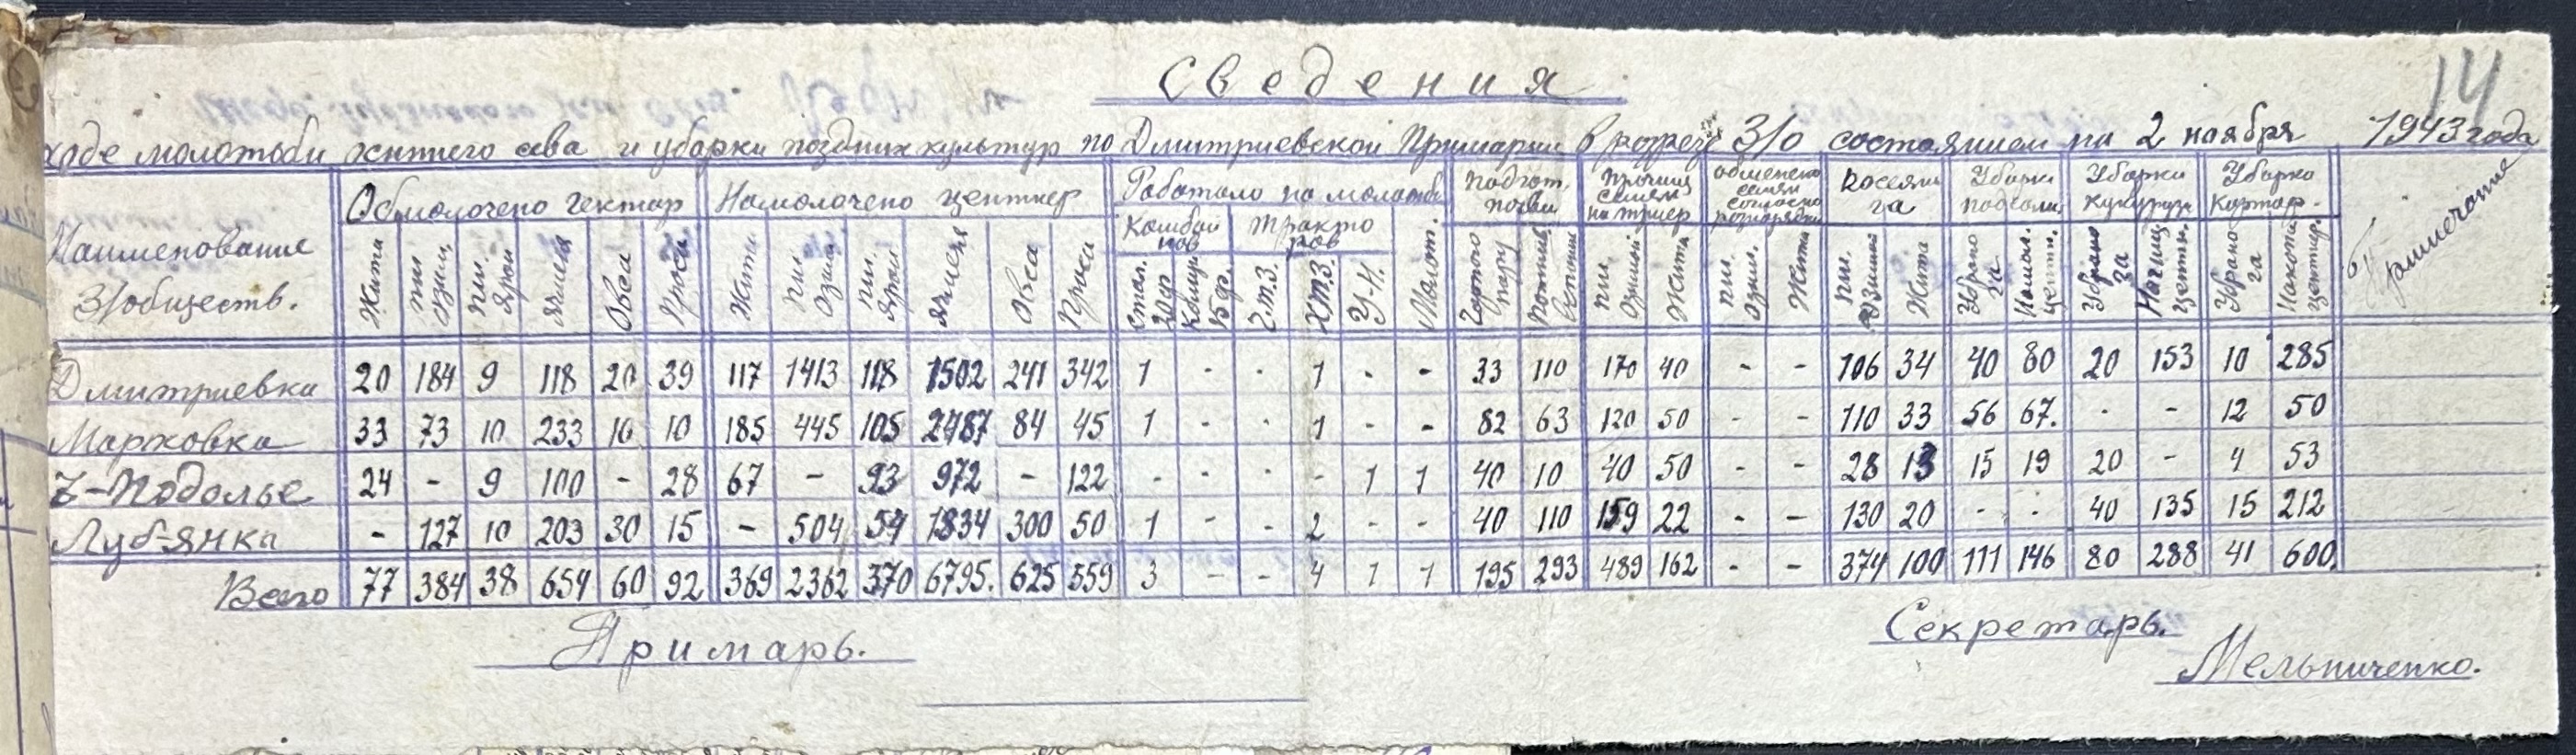 14
Сведения
ходе молотьби осеннего сева и уборки поздних культур по Дмитриевской Примарии в розрезе З/о состоянием на 2 ноября 1943 года
Наименование З/обществ. Обмолочено гектар Намолочено центнер Работало на молотьбе Подгот. почви Прочищ семен на триер обменено семян согласно розпорядки Посеяно га Уборка подсолн. Уборка кукурузи Уборка картоф. Примечание
Комбай нов Тракто ров
Жита пш озим пш. ярой Ячмея Овса Проса Жита пш озим пш. ярой Ячменя Овса Проса Стал. Комун С.Т.З. Х.Т.З. У-Н. Молот. пару пш. озимой Жита пш. озим. Жита пш. озимой Жита Убрано га Намол. центн. Убрано га центн. Убрано га Накоп. центнер.
Дмитриевка 20 184 9 118 20 39 117 1413 118 1502 241 342 1 - - 1 - - 33 110 170 40 - - 106 34 40 80 20 153 10 285
Марковка 33 73 10 233 10 10 185 445 105 2487 84 45 1 - - 1 - - 82 63 120 50 - - 110 33 56 67. - - 12 50
Ч-Подолье 24 - 9 100 - 28 67 - 93 972 - 122 - - - - 1 1 40 10 40 50 - - 28 13 15 19 20 - 4 53
Луб-янка - 127 10 203 30 15 - 504 54 1834 300 50 1 - - 2 - - 40 110 159 22 - - 130 20 - - 40 135 15 212
Всего 77 384 38 654 60 92 369 2362 370 6795. 625 559 3 - - 4 1 1 195 293 489 162 - - 374 100 111 146 80 288 41 600.
Примарь.
Секретарь.
Мельниченко.